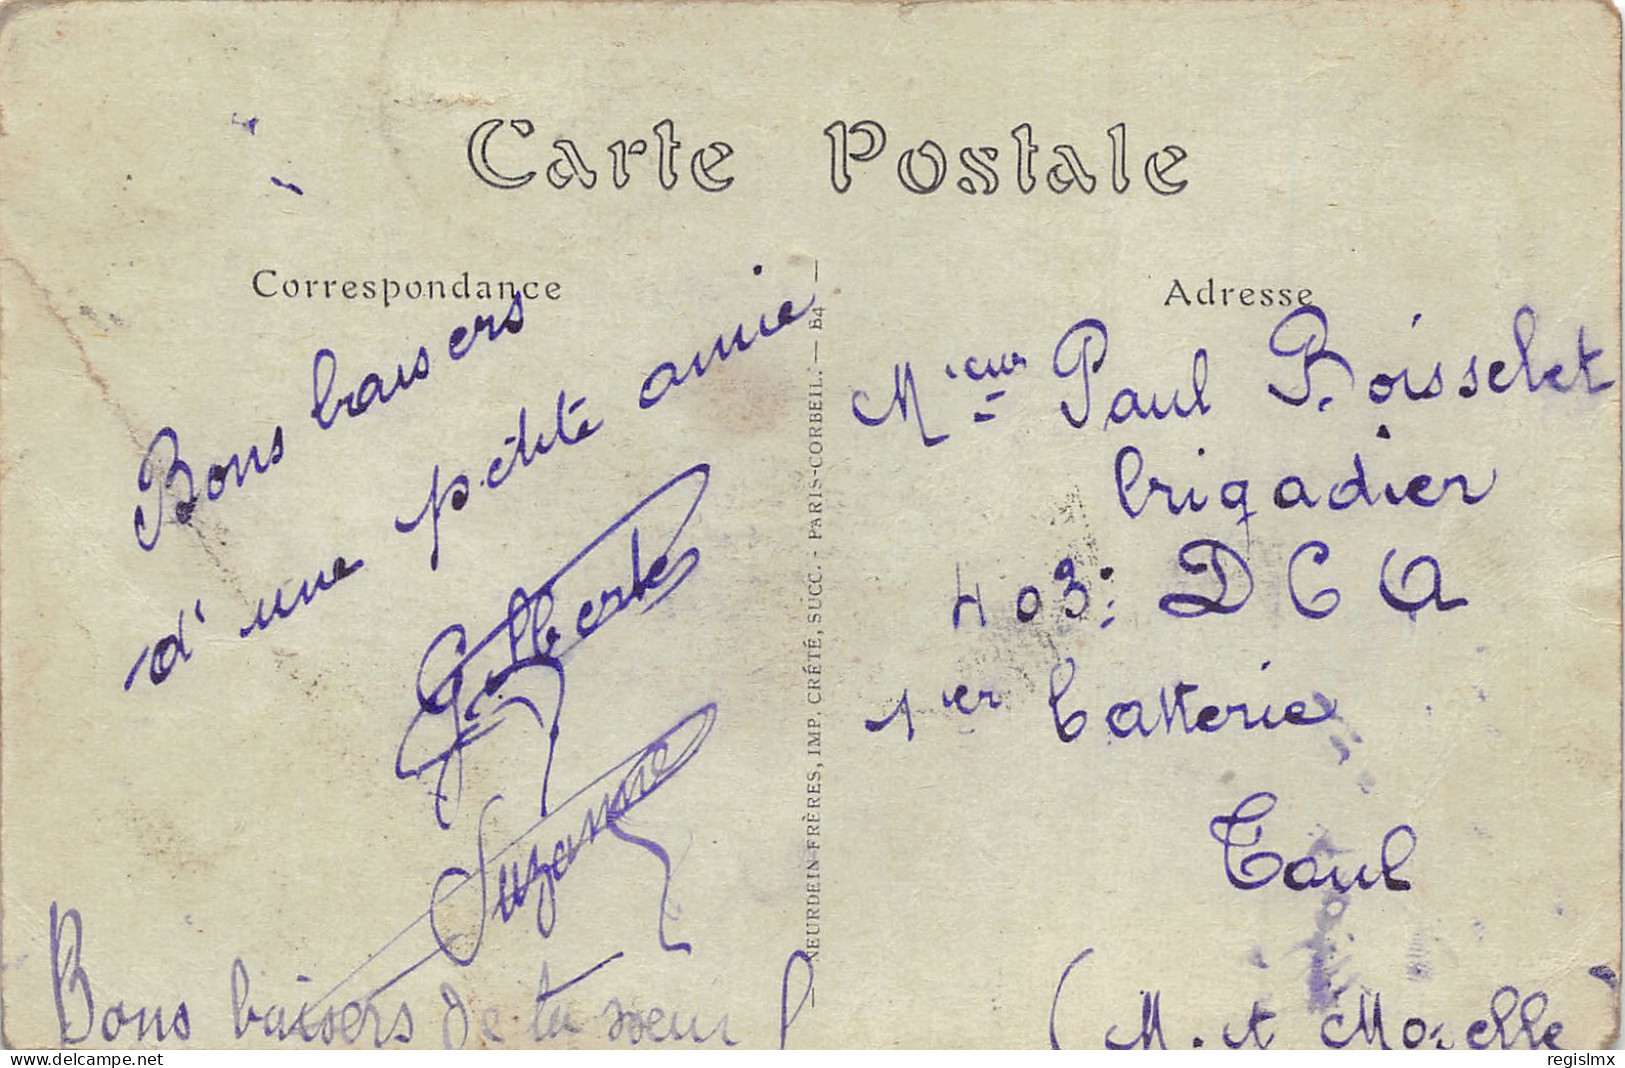 Carte Postale
Correspondance
Bons baisers
d'une petite amie
Gilberte
Suzanne
Bons baisers de ta soeur
NEURDEIN FRÈRES, IMP. CRÉTÉ, SUCC. - PARIS-CORBEIL. — B4
Adresse
Mr ieur Paul Boisselet
brigadier
403: D C A
1er batterie
Toul
(M. et Moselle)
delcampe.net
regislmx